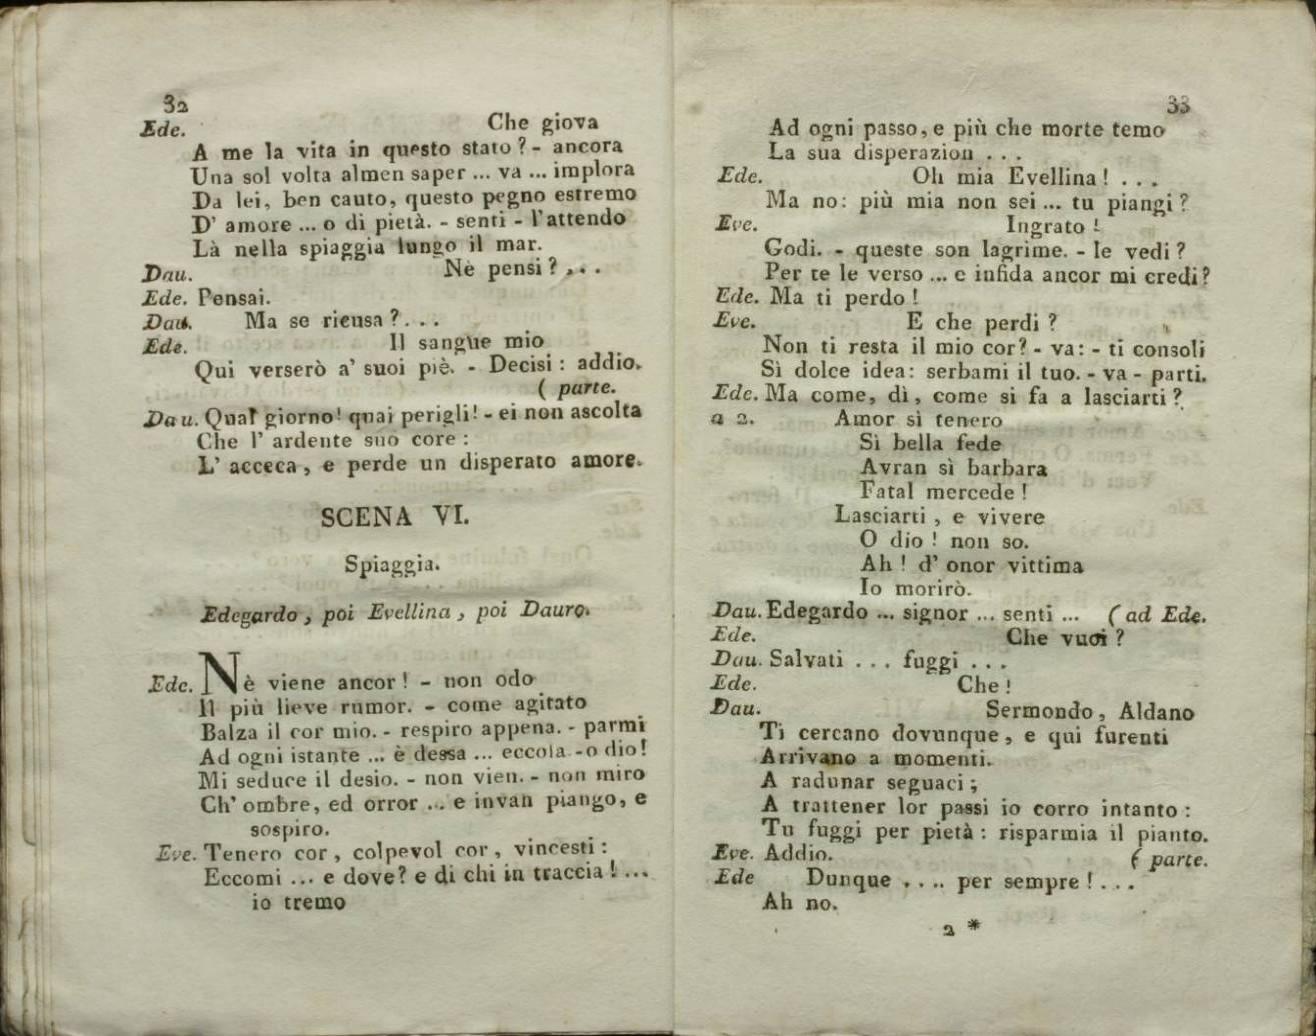 32
Ede. Che giova
A me la vita in questo stato? - ancora
Una sol volta almen saper ... va ... implora
Da lei, ben cauto, questo pegno estremo
D' amore ... o di pietà. - senti - l'attendo
Là nella spiaggia lungo il mar.
Dau. Nè pensi? ...
Ede. Pensai.
Dau. Ma se ricusa? ...
Ede. Il sangue mio
Qui verserò a' suoi piè. - Decisi: addio.
( parte.
Dau. Qual giorno! quai perigli! - ei non ascolta
Che l' ardente suo core:
L' acceca, e perde un disperato amore.
SCENA VI.
Spiaggia.
Edegardo, poi Evellina, poi Dauro.
Ede. Nè viene ancor! - non odo
Il più lieve rumor. - come agitato
Balza il cor mio. - respiro appena. - parmi
Ad ogni istante ... è dessa ... eccola - o dio!
Mi seduce il desio. - non vien. - non miro
Ch' ombre, ed orror ... e invan piango, e
sospiro.
Eve. Tenero cor, colpevol cor, vincesti:
Eccomi ... e dove? e di chi in traccia! ...
io tremo
33
Ad ogni passo, e più che morte temo
La sua disperazion ...
Ede. Oh mia Evellina! ...
Ma no: più mia non sei ... tu piangi?
Eve. Ingrato!
Godi. - queste son lagrime. - le vedi?
Per te le verso ... e infida ancor mi credi?
Ede. Ma ti perdo!
Eve. E che perdi?
Non ti resta il mio cor? - va: - ti consoli
Sì dolce idea: serbami il tuo. - va - parti.
Ede. Ma come, dì, come si fa a lasciarti?
a 2. Amor sì tenero
Sì bella fede
Avran sì barbara
Fatal mercede!
Lasciarti, e vivere
O dio! non so.
Ah! d' onor vittima
Io morirò.
Dau. Edegardo ... signor ... senti ... ( ad Ede.
Ede. Che vuoi?
Dau. Salvati ... fuggi ...
Ede. Che!
Dau. Sermondo, Aldano
Ti cercano dovunque, e qui furenti
Arrivano a momenti.
A radunar seguaci;
A trattener lor passi io corro intanto:
Tu fuggi per pietà: risparmia il pianto.
Eve. Addio. ( parte.
Ede Dunque .... per sempre! ...
Ah no.
2 *